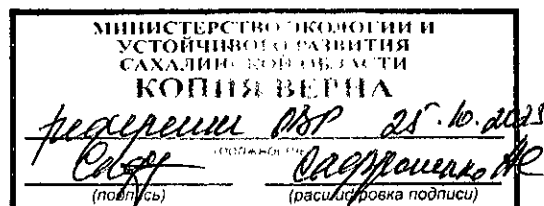 МИНИСТЕРСТВО ЭКОЛОГИИ И
УСТОЙЧИВОГО РАЗВИТИЯ
САХАЛИНСКОЙ ОБЛАСТИ
КОПИЯ ВЕРНА
референт ОВР 25.10.2023
(должность)
(подпись) (расшифровка подписи)